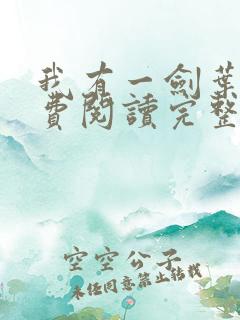 我有一劍葉
費閱讀完整
空空公子
未经同意禁止转载